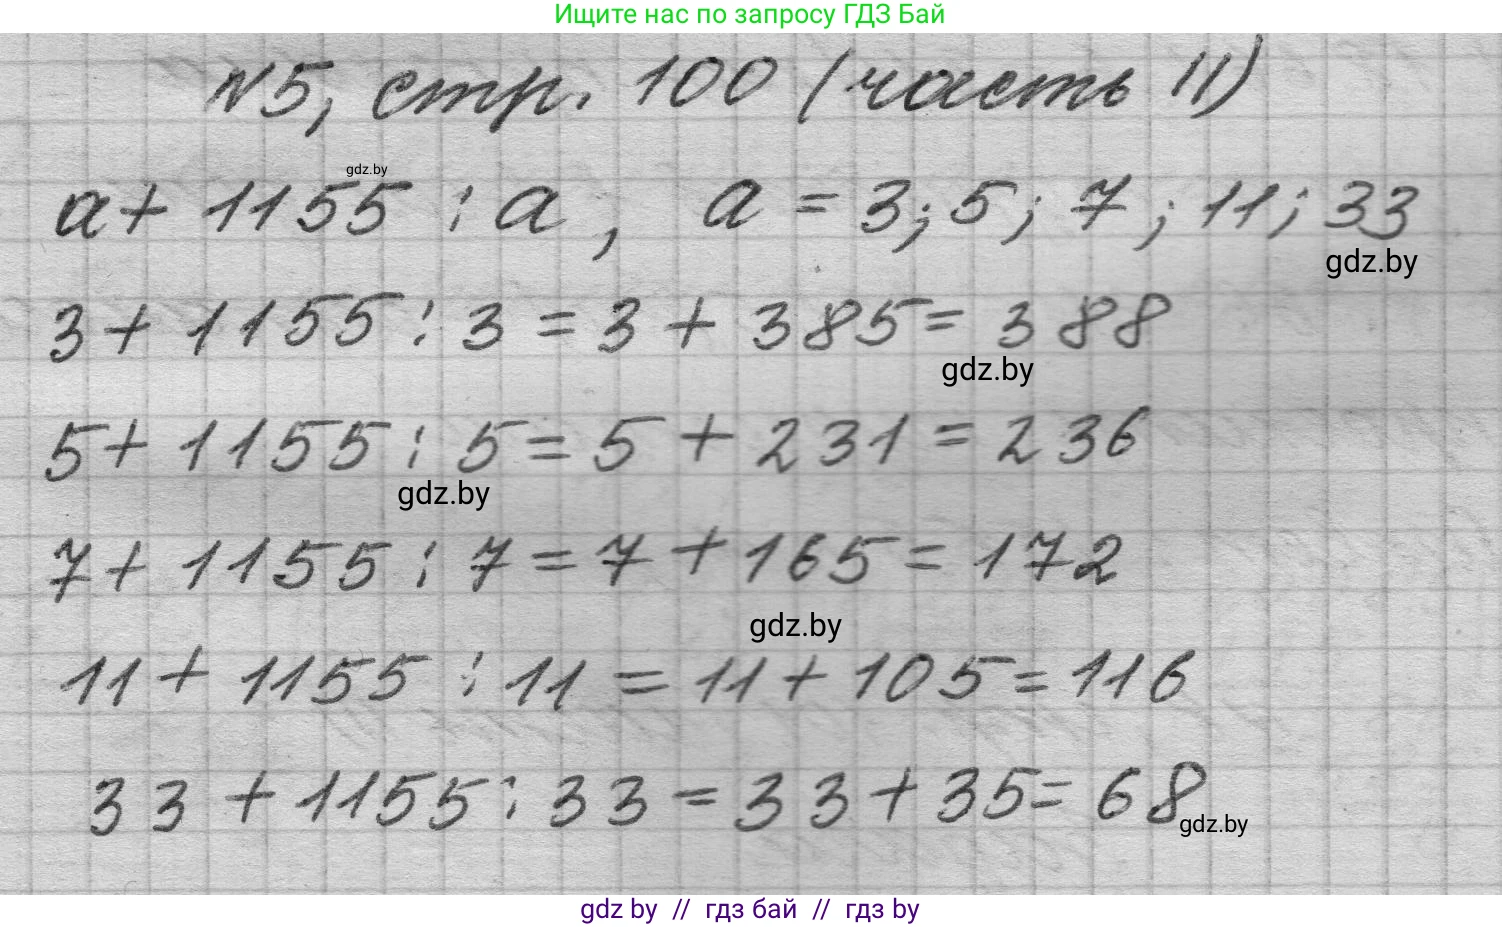 Ищите нас по запросу ГДЗ Бай
№5, стр. 100 (часть II)
gdz.by
a + 1155 : a, a = 3; 5; 7; 11; 33
gdz.by
3 + 1155 : 3 = 3 + 385 = 388
gdz.by
5 + 1155 : 5 = 5 + 231 = 236
gdz.by
7 + 1155 : 7 = 7 + 165 = 172
gdz.by
11 + 1155 : 11 = 11 + 105 = 116
33 + 1155 : 33 = 33 + 35 = 68
gdz.by
gdz by // гдз бай // гдз by